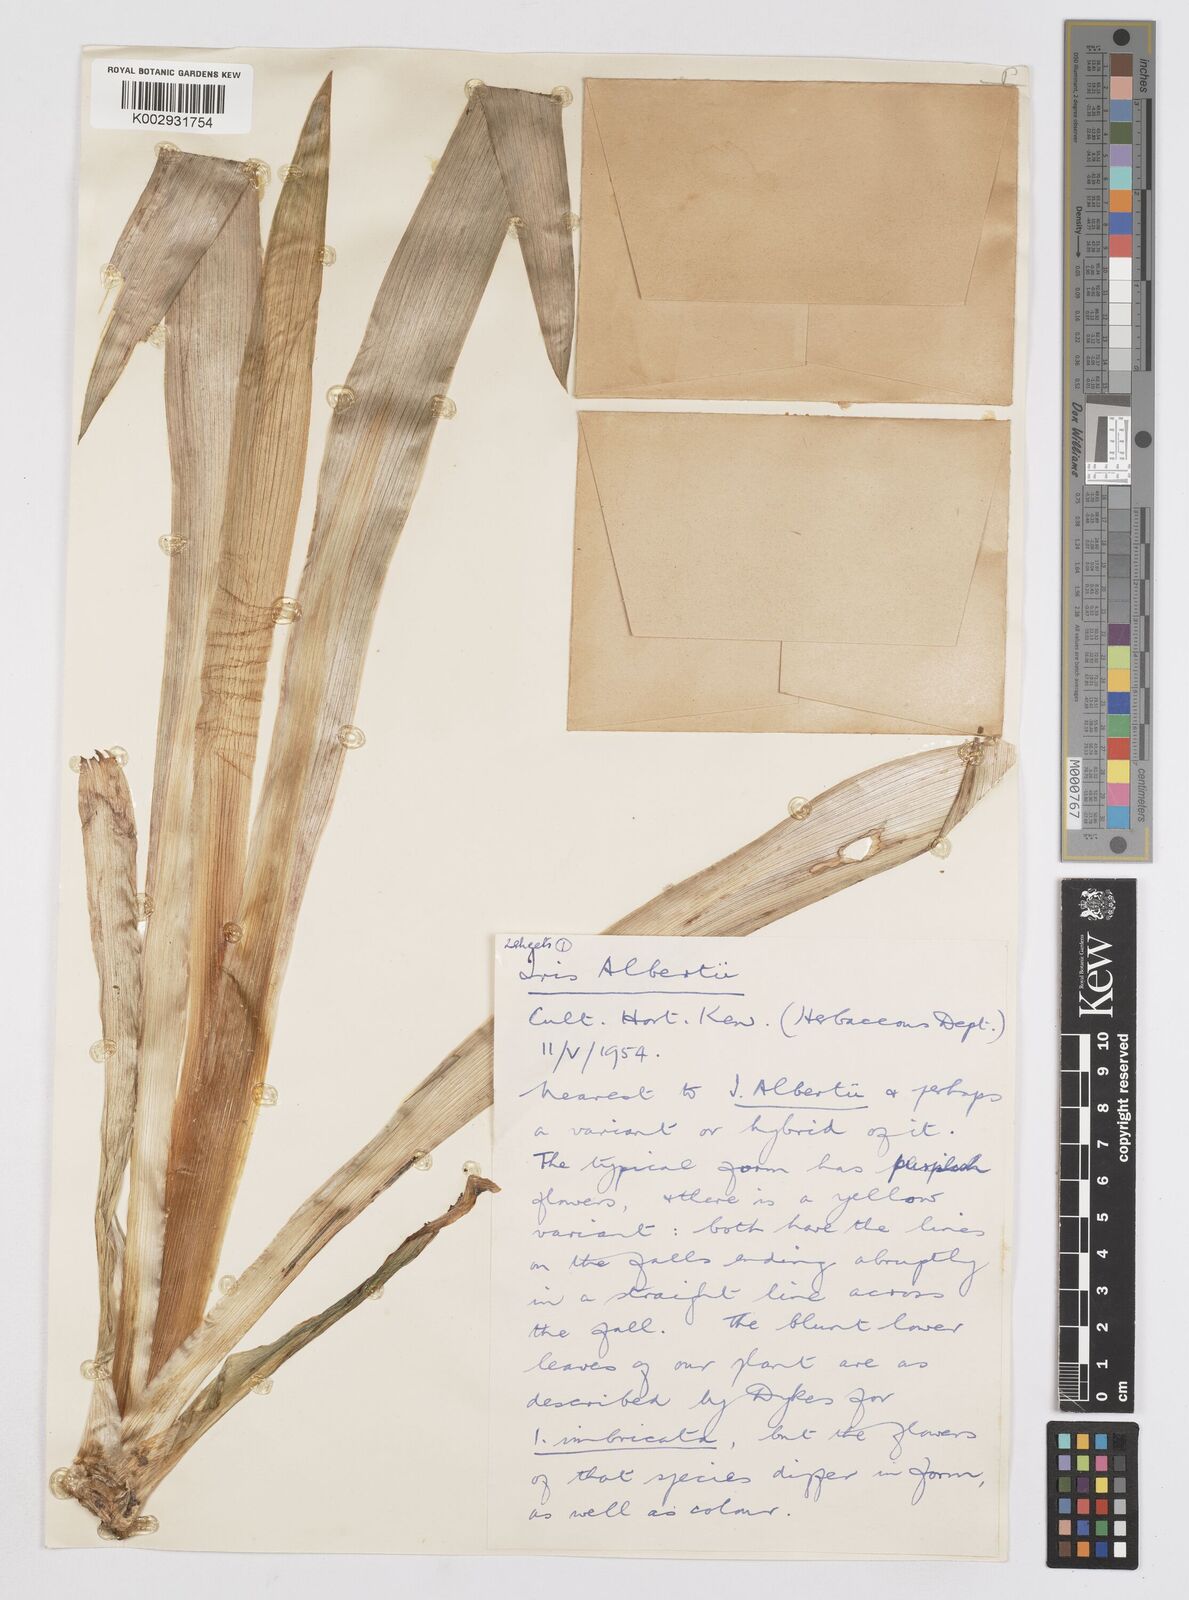 ROYAL BOTANIC GARDENS KEW
K002931754
2 sheets ①
Iris Albertii
Cult. Hort. Kew. (Herbaceous Dept.)
11/V/1954.
Nearest to I. Albertii & perhaps
a variant or hybrid of it.
The typical form has purplish
flowers, & there is a yellow
variant : both have the lines
on the falls ending abruptly
in a straight line across
the fall. The blunt lower
leaves of our plant are as
described by Dykes for
I. imbricata, but the flowers
of that species differ in form,
as well as colour.
inches
Density
Don Williams
All values are batch averages
centimeters
M000767
Royal Botanic Gardens
Kew
0 1 2 3 4 5 6 7 8 9 10
cm
copyright reserved